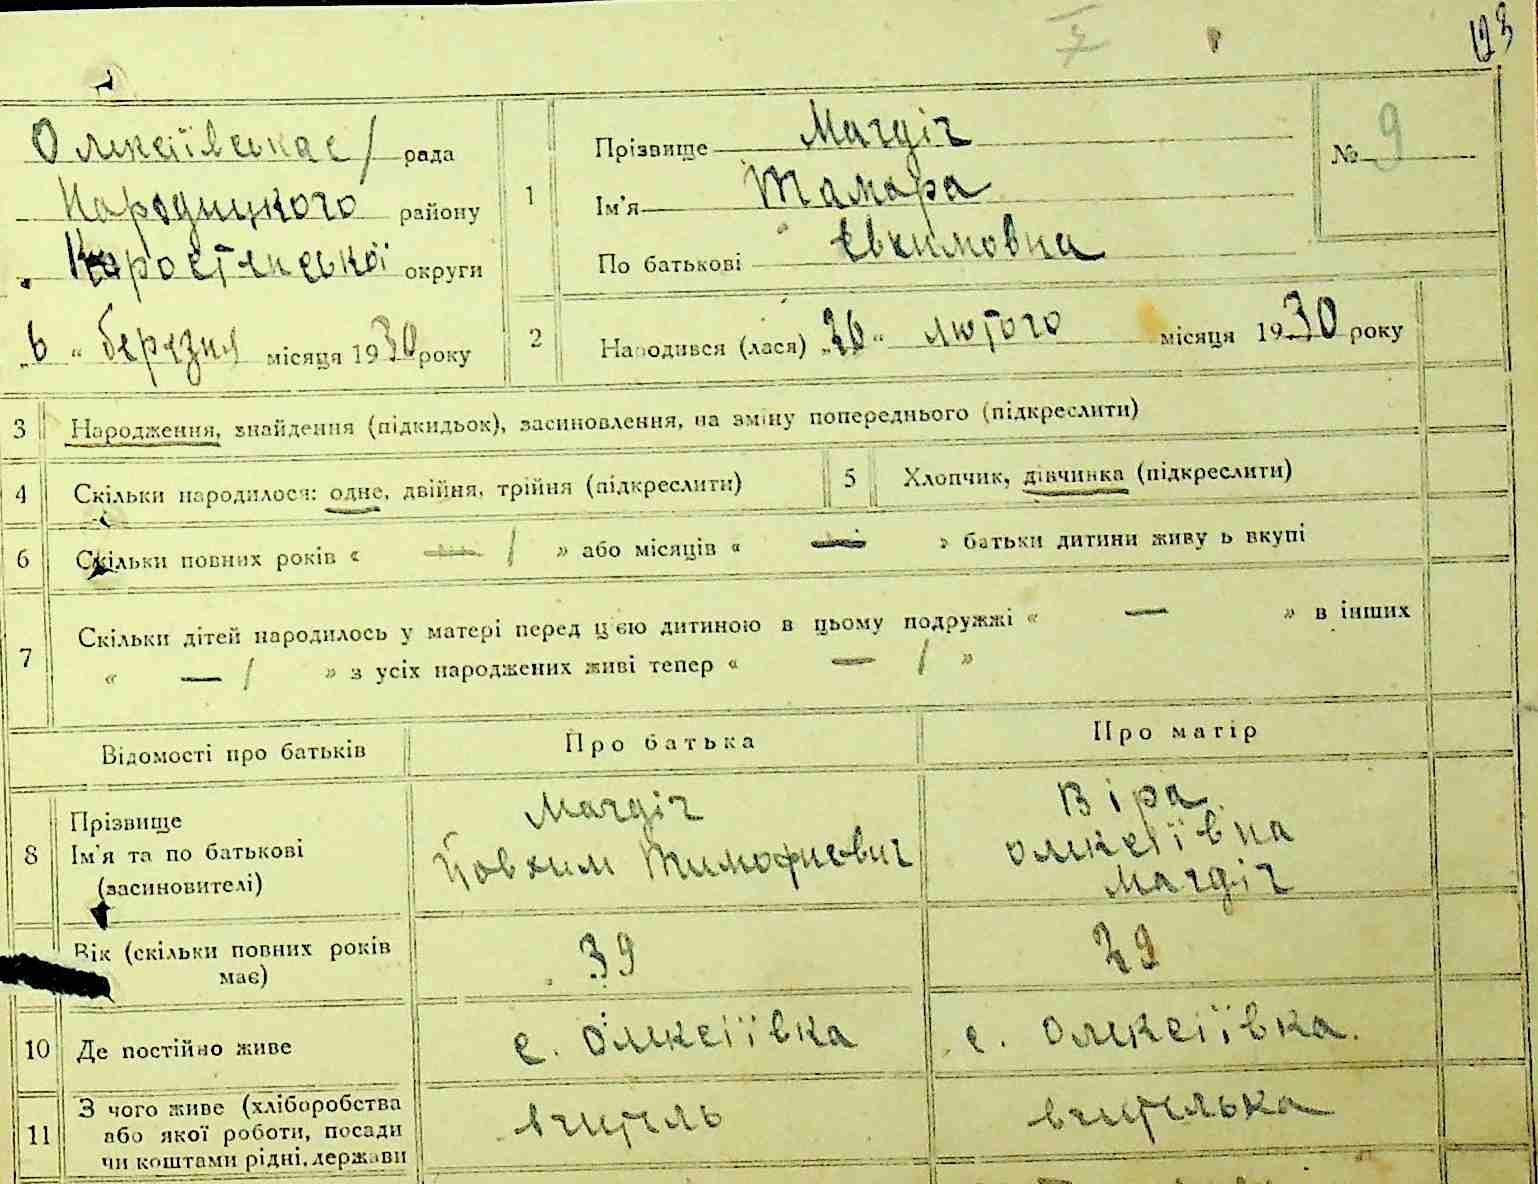 123
Олексіївська с/рада
Народицького району
Коростенської округи
„6“ березня місяця 1930 року
1
Прізвище Магдіч
Ім'я Тамара
По батькові Євхимовна
№ 9
2
Народився (лася) „26“ лютого місяця 1930 року
3 Народження, знайдення (підкидьок), засиновлення, на зміну попереднього (підкреслити)
4 Скільки народилося: одне, двійня, трійня (підкреслити)
5 Хлопчик, дівчинка (підкреслити)
6 Скільки повних років « — / » або місяців « — » батьки дитини живуть вкупі
7 Скільки дітей народилось у матері перед цією дитиною в цьому подружжі « — » в інших
« — / » з усіх народжених живі тепер « — / »
Відомості про батьків Про батька Про матір
8 Прізвище
Ім'я та по батькові
(засиновителі)
Магдіч
Йовхим Тимофиевич
Віра
Олексіївна
Магдіч
Вік (скільки повних років
має)
39 29
10 Де постійно живе с. Олексіївка с. Олексіївка.
11 З чого живе (хліборобства
або якої роботи, посади
чи коштами рідні, держави
вчитель вчителька